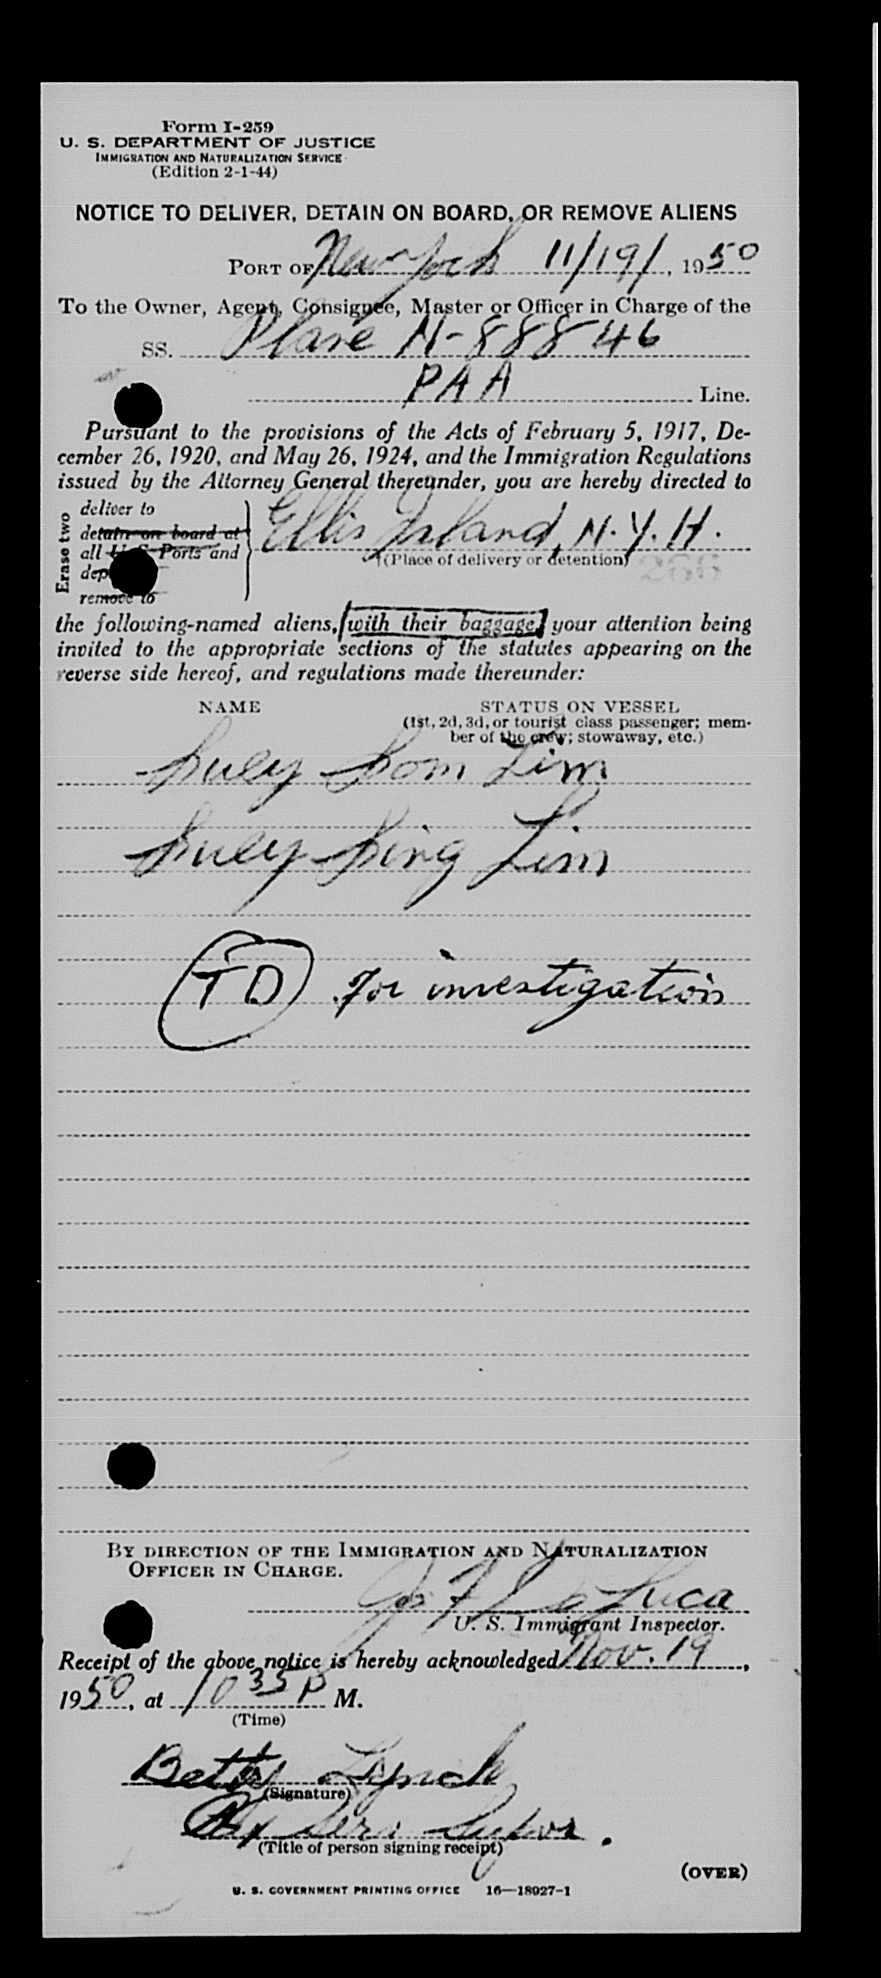 Form I-259
U. S. DEPARTMENT OF JUSTICE
IMMIGRATION AND NATURALIZATION SERVICE
(Edition 2-1-44)
NOTICE TO DELIVER, DETAIN ON BOARD, OR REMOVE ALIENS
PORT OF New York 11/19/, 1950
To the Owner, Agent, Consignee, Master or Officer in Charge of the
SS. Plane N-88846
PAA Line.
Pursuant to the provisions of the Acts of February 5, 1917, De-
cember 26, 1920, and May 26, 1924, and the Immigration Regulations
issued by the Attorney General thereunder, you are hereby directed to
Erase two
deliver to
detain on board at
all U S Ports and
dep
remove to
Ellis Island, N.Y.H.
(Place of delivery or detention)
the following-named aliens, [with their baggage] your attention being
invited to the appropriate sections of the statutes appearing on the
reverse side hereof, and regulations made thereunder:
NAME STATUS ON VESSEL
(1st, 2d, 3d, or tourist class passenger; mem-
ber of the crew; stowaway, etc.)
Suey Som Lim
Suey Sing Lim
TD for investigation
BY DIRECTION OF THE IMMIGRATION AND NATURALIZATION
OFFICER IN CHARGE.
Jos F Luca
U. S. Immigrant Inspector.
Receipt of the above notice is hereby acknowledged Nov. 19,
1950, at 10 35 P M.
(Time)
Betty Lynch
(Signature)
Serv Supvr.
(Title of person signing receipt)
(OVER)
U. S. GOVERNMENT PRINTING OFFICE 16—18027-1